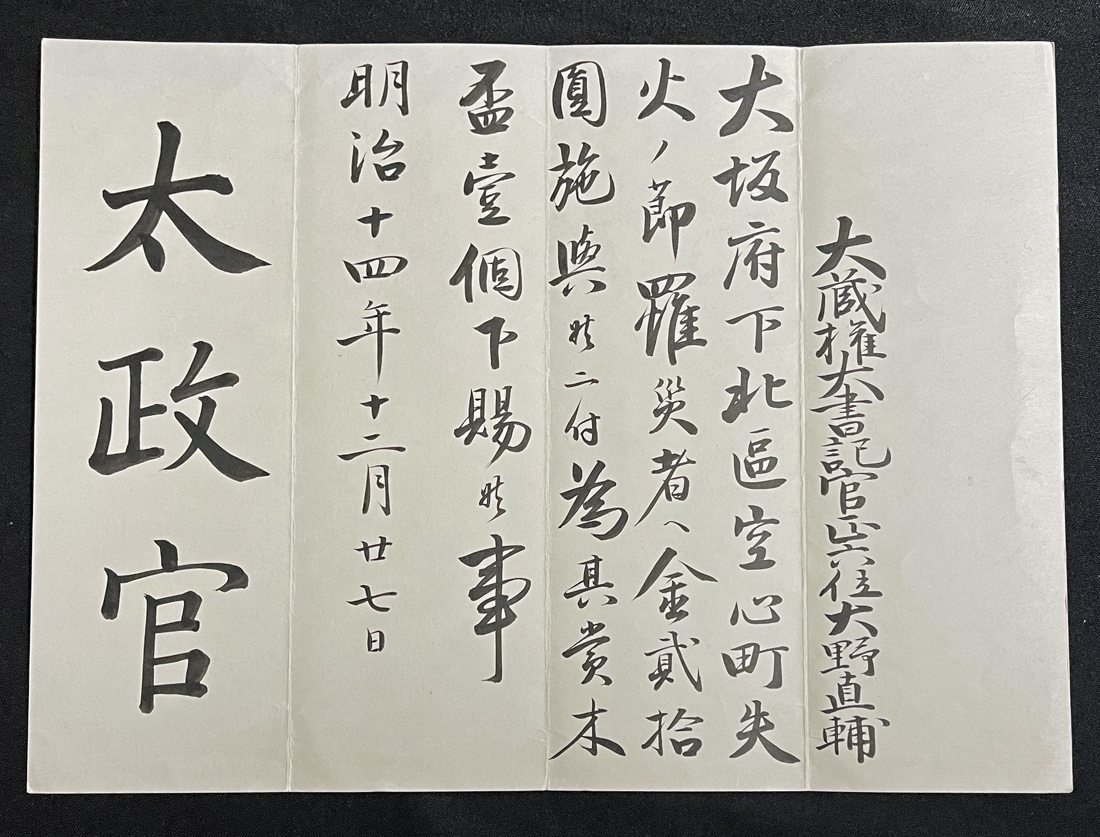 大蔵権大書記官正六位大野直輔
大坂府下北區空心町失
火ノ節罹災者ヘ金貳拾
圓施與候ニ付為其賞木
盃壹個下賜候事
明治十四年十二月廿七日
太政官